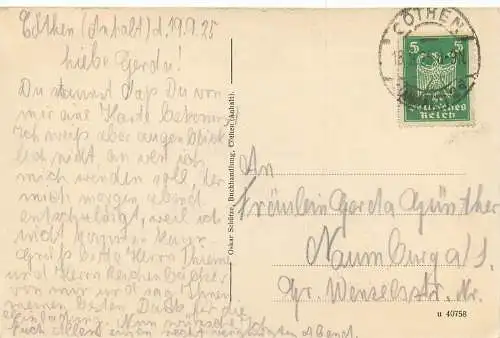 Cöthen (Anhalt) d. 19.9.25
Liebe Gerda!
Du staunst daß Du von
mir eine Karte bekommst
Ich weiß aber augenblick
lich nicht an wen ich
mich wenden soll, der
mich morgen abend
entschuldigt, weil ich
nicht kommen kann.
Grüß bitte Herrn
und Herrn
von mir und sag Ihnen
meinen besten Dank für die
Einladung. Nun wünsche ich
Euch allen einen recht vergnügten Abend.
Oskar Schütze, Buchhandlung, Cöthen (Anhalt).
CÖTHEN
5 5
Deutsches
Reich
An
Fräulein Gerda Günther
Naumburg a/S.
Gr. Wenzelsstr. Nr.
u 40758